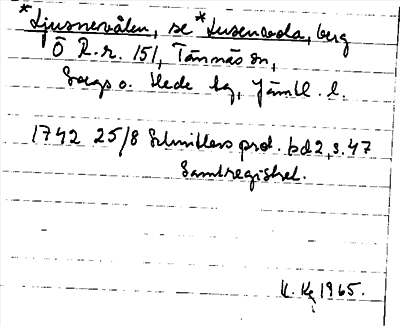 *Ljusnevålen, se *Lusenvola, berg
Ö R.r. 151, Tännäs sn,
Svegs o. Hede tg, Jämtl. l.
1742 25/8 Schnitlers prot. bd 2, s. 47
Samtregistret.
1965.